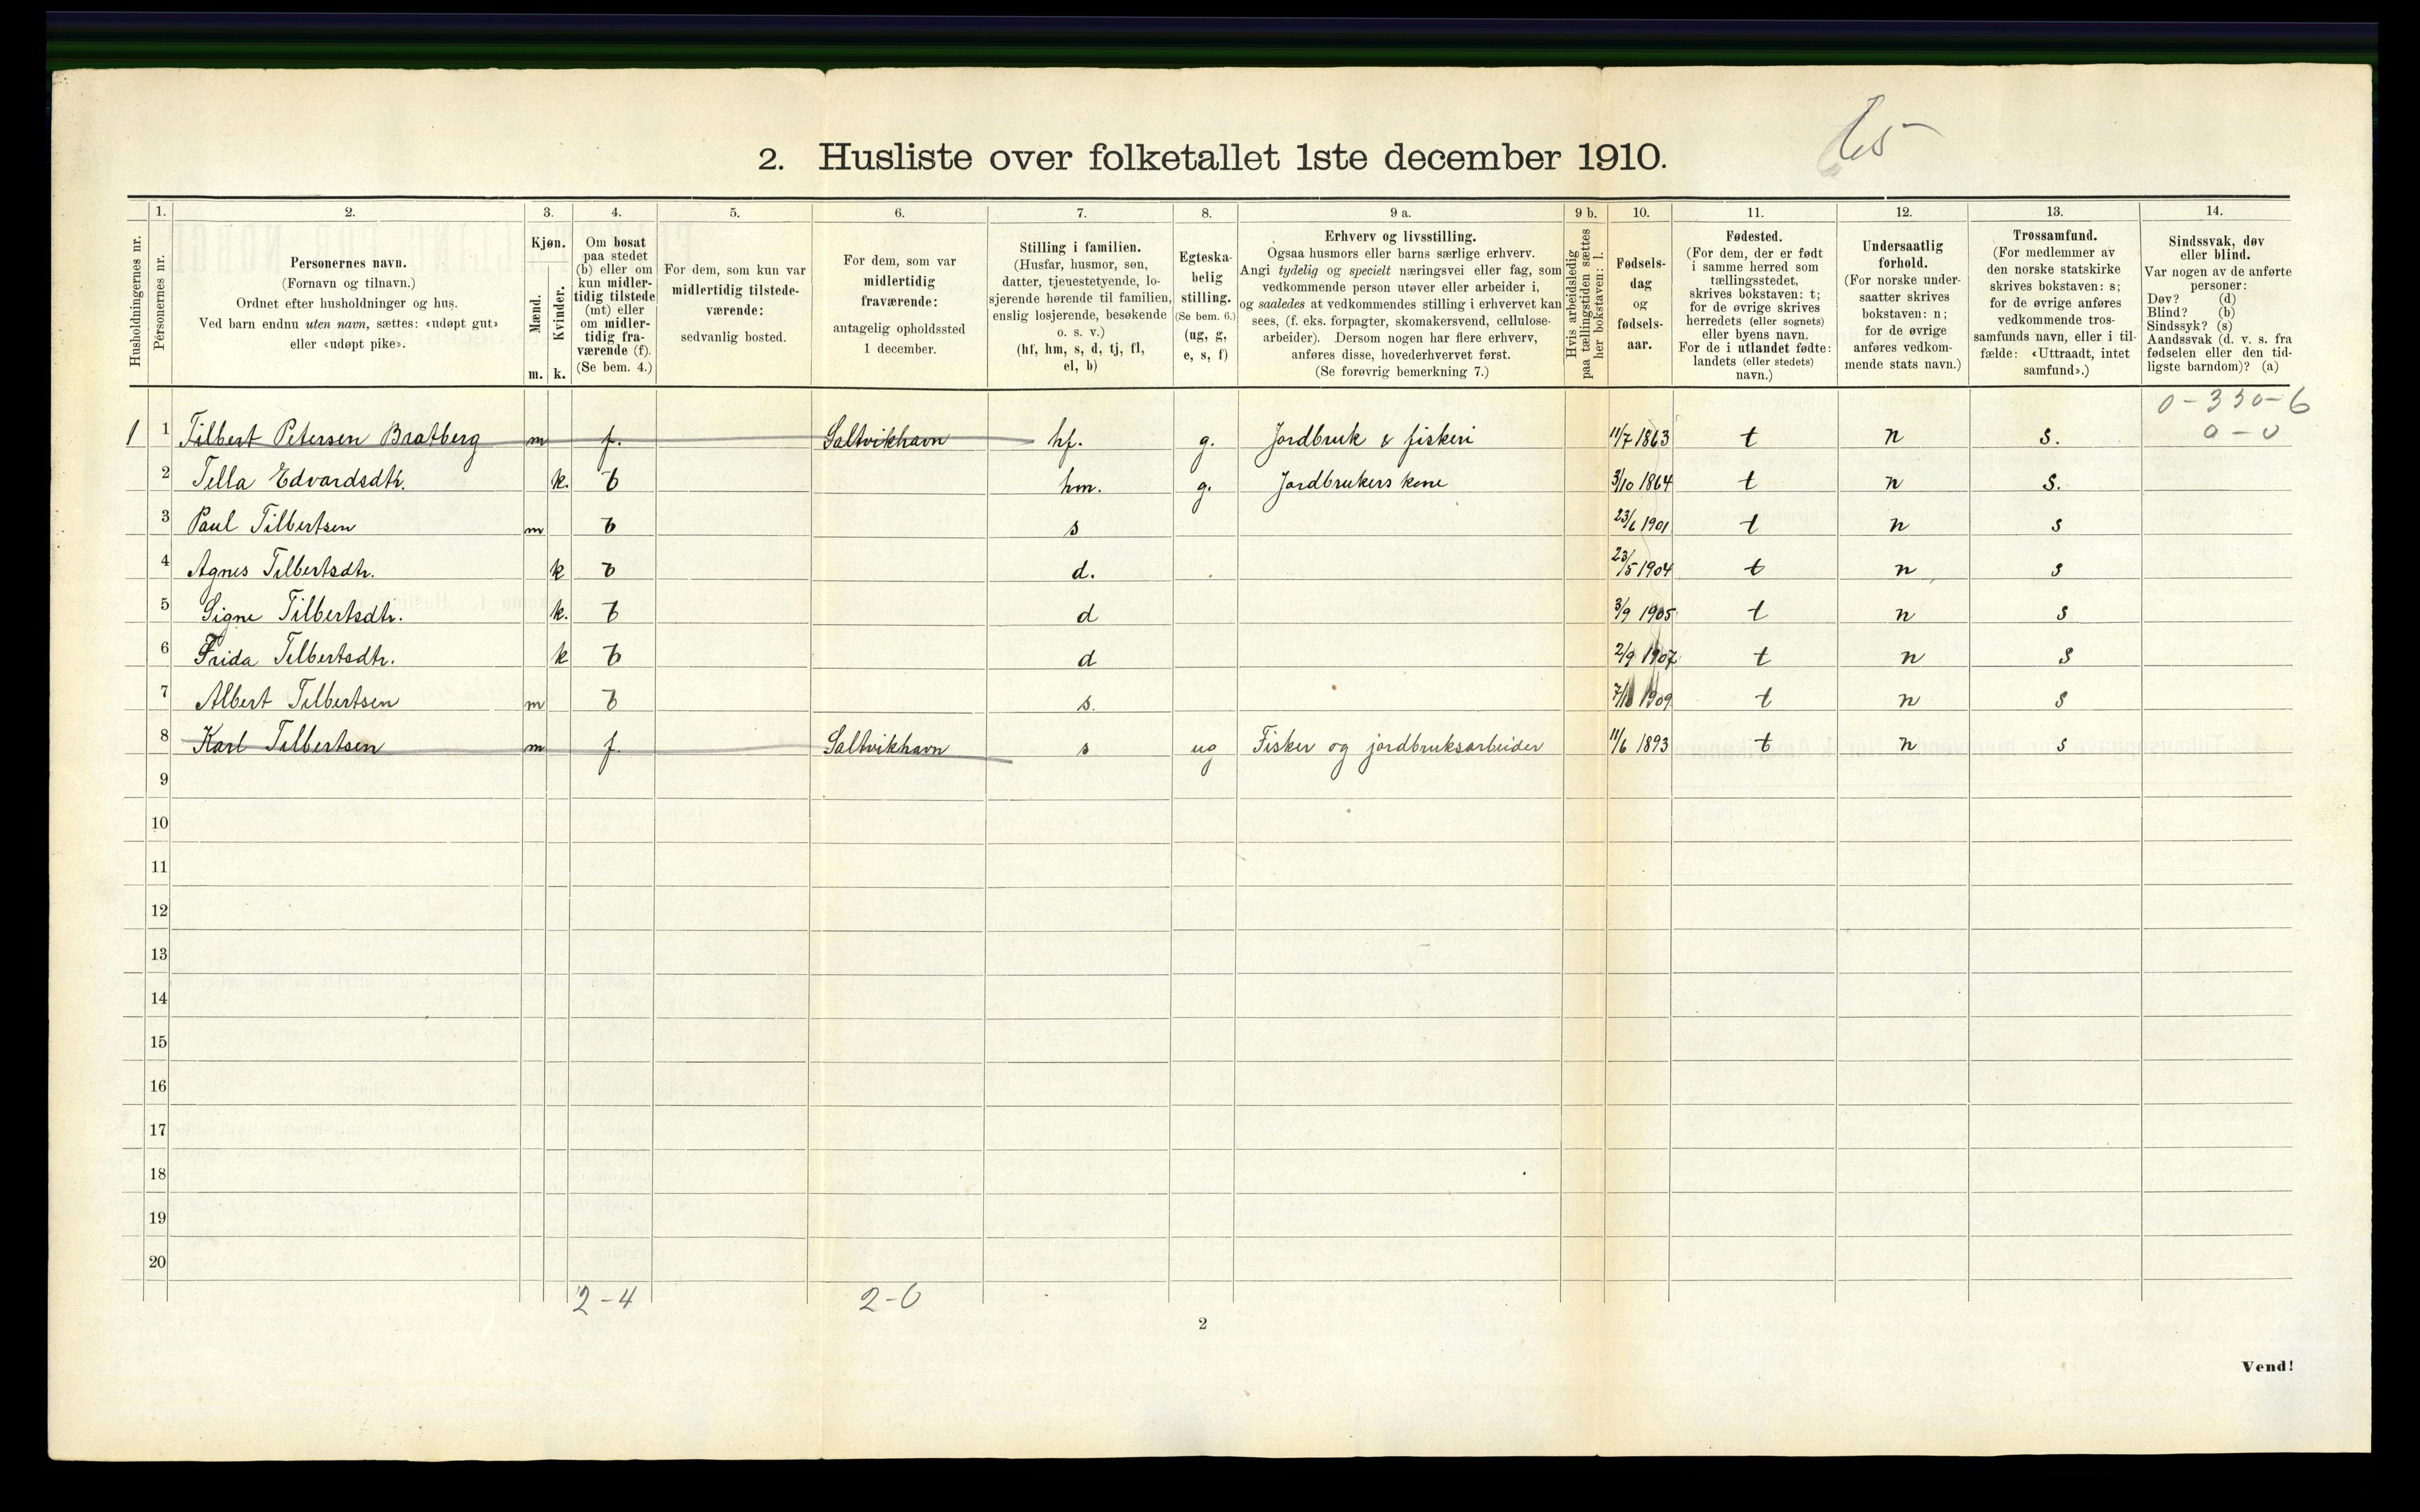 65
2. Husliste over folketallet 1ste december 1910.
Husholdningernes nr.
1. Personernes nr.
2. Personernes navn.
(Fornavn og tilnavn.)
Ordnet efter husholdninger og hus.
Ved barn endnu uten navn, sættes: «udøpt gut»
eller «udøpt pike».
3. Kjøn.
Mænd. m.
Kvinder. k.
4. Om bosat
paa stedet
(b) eller om
kun midler-
tidig tilstede
(mt) eller
om midler-
tidig fra-
værende (f).
(Se bem. 4.)
5. For dem, som kun var
midlertidig tilstede-
værende:
sedvanlig bosted.
6. For dem, som var
midlertidig
fraværende:
antagelig opholdssted
1 december.
7. Stilling i familien.
(Husfar, husmor, søn,
datter, tjenestetyende, lo-
sjerende hørende til familien,
enslig losjerende, besøkende
o. s. v.)
(hf, hm, s, d, tj, fl,
el, b)
8. Egteska-
belig
stilling.
(Se bem. 6.)
(ug, g,
e, s, f)
9 a. Erhverv og livsstilling.
Ogsaa husmors eller barns særlige erhverv.
Angi tydelig og specielt næringsvei eller fag, som
vedkommende person utøver eller arbeider i,
og saaledes at vedkommendes stilling i erhvervet kan
sees, (f. eks. forpagter, skomakersvend, cellulose-
arbeider). Dersom nogen har flere erhverv,
anføres disse, hovederhvervet først.
(Se forøvrig bemerkning 7.)
9 b. Hvis arbeidsledig
paa tællingstiden sættes
her bokstaven: l.
10. Fødsels-
dag
og
fødsels-
aar.
11. Fødested.
(For dem, der er født
i samme herred som
tællingsstedet,
skrives bokstaven: t;
for de øvrige skrives
herredets (eller sognets)
eller byens navn.
For de i utlandet fødte:
landets (eller stedets)
navn.)
12. Undersaatlig
forhold.
(For norske under-
saatter skrives
bokstaven: n;
for de øvrige
anføres vedkom-
mende stats navn.)
13. Trossamfund.
(For medlemmer av
den norske statskirke
skrives bokstaven: s;
for de øvrige anføres
vedkommende tros-
samfunds navn, eller i til-
fælde: «Uttraadt, intet
samfund».)
14. Sindssvak, døv
eller blind.
Var nogen av de anførte
personer:
Døv? (d)
Blind? (b)
Sindssyk? (s)
Aandssvak (d. v. s. fra
fødselen eller den tid-
ligste barndom)? (a)
0-330-6
1 1 Tilbert Petersen Bratberg m f. Saltvikhavn hf. g. Jordbruk & fiskeri 11/7 1863 t n s. 0-0
2 Tella Edvardsdtr. k. b hm. g. Jordbrukers kone 3/10 1864 t n s.
3 Paul Tilbertsen m b s 23/6 1901 t n s
4 Agnes Tilbertsdtr. k b d. 23/5 1904 t n s
5 Signe Tilbertsdtr. k. b d 3/9 1905 t n s
6 Frida Tilbertsdtr. k b d 2/9 1907 t n s
7 Albert Tilbertsen m b s. 7/10 1909 t n s
8 Karl Tilbertsen m f. Saltvikhavn s ug Fisker og jordbruksarbeider 11/6 1893 t n s
9
10
11
12
13
14
15
16
17
18
19
20
2-4 2-0
2
Vend!